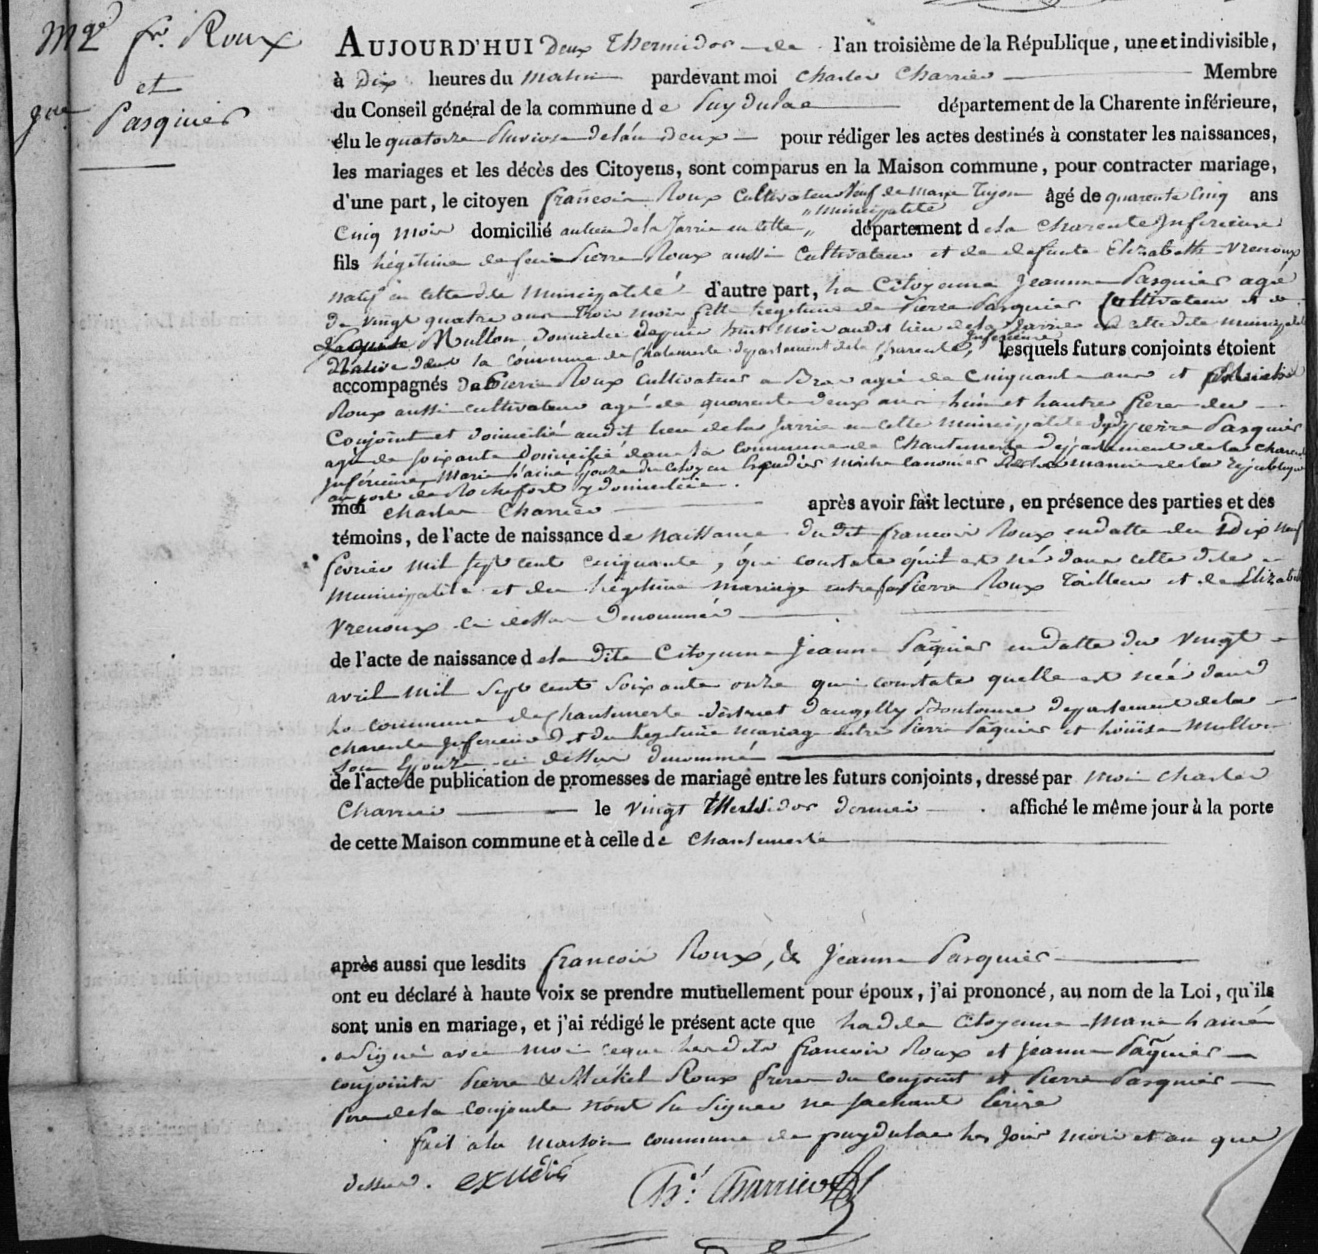 Mge fs. Roux
et
jne Pasquier
AUJOURD'HUI Deux Thermidor de l'an troisième de la République, une et indivisible,
à dix heures du matin pardevant moi Charles Charrier Membre
du Conseil général de la commune de Puydulac département de la Charente inférieure,
élu le quatorze Pluviose de l'an deux pour rédiger les actes destinés à constater les naissances,
les mariages et les décès des Citoyens, sont comparus en la Maison commune, pour contracter mariage,
d'une part, le citoyen francois Roux Cultivateur Veuf de Marie âgé de quarente Cinq ans
Cinq mois domicilié au lieu de la Jarrie en cette municipalité département de la Charente Inferieure
fils légitime de feu Pierre Roux aussi Cultivateur et de defunte Elizabeth Vrenoux
natif en cette dte municipalité d'autre part, la Citoyenne Jeanne Pasquier agé
de vingt quatre ans trois mois fille legitime de Pierre Pasquier Cultivateur et de
Mullon, domiciliée depuis huit mois audit lieu de la Jarrie en cette dite municipalité
Native dans la commune de Chantemerle departement de la Charente Inferieure, lesquels futurs conjoints étoient
accompagnés de Pierre Roux Cultivateur agé de Cinquante ans et
Roux aussi cultivateur agé de quarente deux ans, hun et hautre freres du
Conjoint et domicilié audit lieu de la Jarrie en cette municipalité, de Pierre Pasquier
agé de soixante domicilié dans la commune de Chantemerle departement de la Charente
inférieure, Marie hainé Epouze du Citoyen maitre canonier de la marine de la république
au port de Rochefort y domiciliée.
moi Charles Charrier après avoir fait lecture, en présence des parties et des
témoins, de l'acte de naissance de naissance du dit francois Roux en datte du Dix neuf
fevrier mil sept cent cinquante, que constate qu'il est né dans cette dite
municipalité et du légitime mariage entre feu Pierre Roux Tailleur et de Elizabeth
Vrenoux ci dessu denommés
de l'acte de naissance de la dite Citoyenne Jeanne Paqier en datte du vingt
avril mil sept cent soixante onze qui constate quelle est née dans
la commune de Chantemerle district d'angelly Boutonne departement de la
charente Inferieure et du legitime mariage entre Pierre Paquier et hoüise Mullon
son Epouze ci dessu denommé
de l'acte de publication de promesses de mariage entre les futurs conjoints, dressé par moi Charles
Charrier le vingt dernier affiché le même jour à la porte
de cette Maison commune et à celle de Chantemerle
après aussi que lesdits francois Roux, & Jeanne Pasquier
ont eu déclaré à haute voix se prendre mutuellement pour époux, j'ai prononcé, au nom de la Loi, qu'ils
sont unis en mariage, et j'ai rédigé le présent acte que ladite Citoyenne Marie hainé
a Signé avec moi ceque les dits francois Roux et jeanne Paquier
conjoints Pierre & Michel Roux freres du conjoint et Pierre Pasquier
Pere de la conjointe n'ont su signer ne sachant Ecrire
fait a la maison commune de puydulac les Jour mois et an que
dessus.
Ch.s Charrier